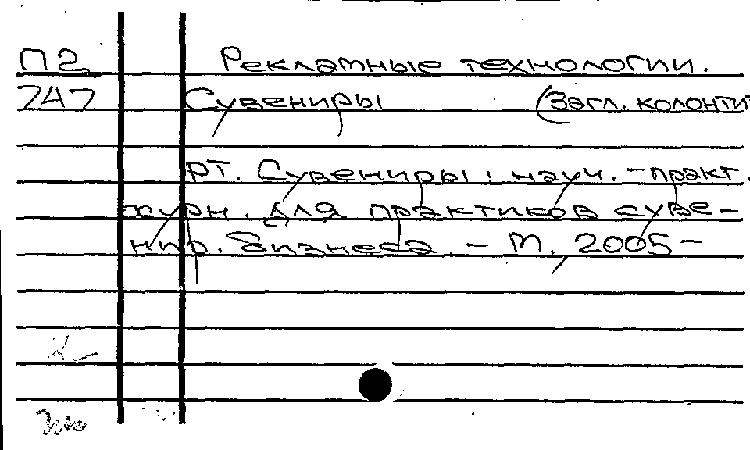 П2 Рекламные технологии.
747 Сувениры (Загл. колонтит
рт. Сувениры : науч.-практ.
журн. для практиков суве-
нир. бизнеса. - М., 2005-